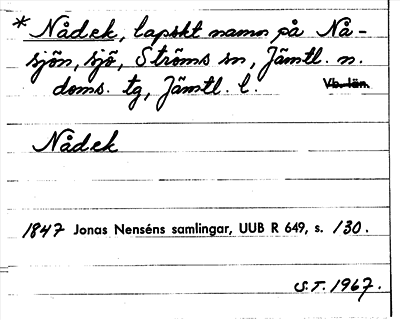 * Nådek, lapskt namn på Nå-
sjön, sjö, Ströms sn, Jämtl. n.
doms. tg, Jämtl. l. Vb. län.
Nådek
1847 Jonas Nenséns samlingar, UUB R 649, s. 130.
S.T. 1967.